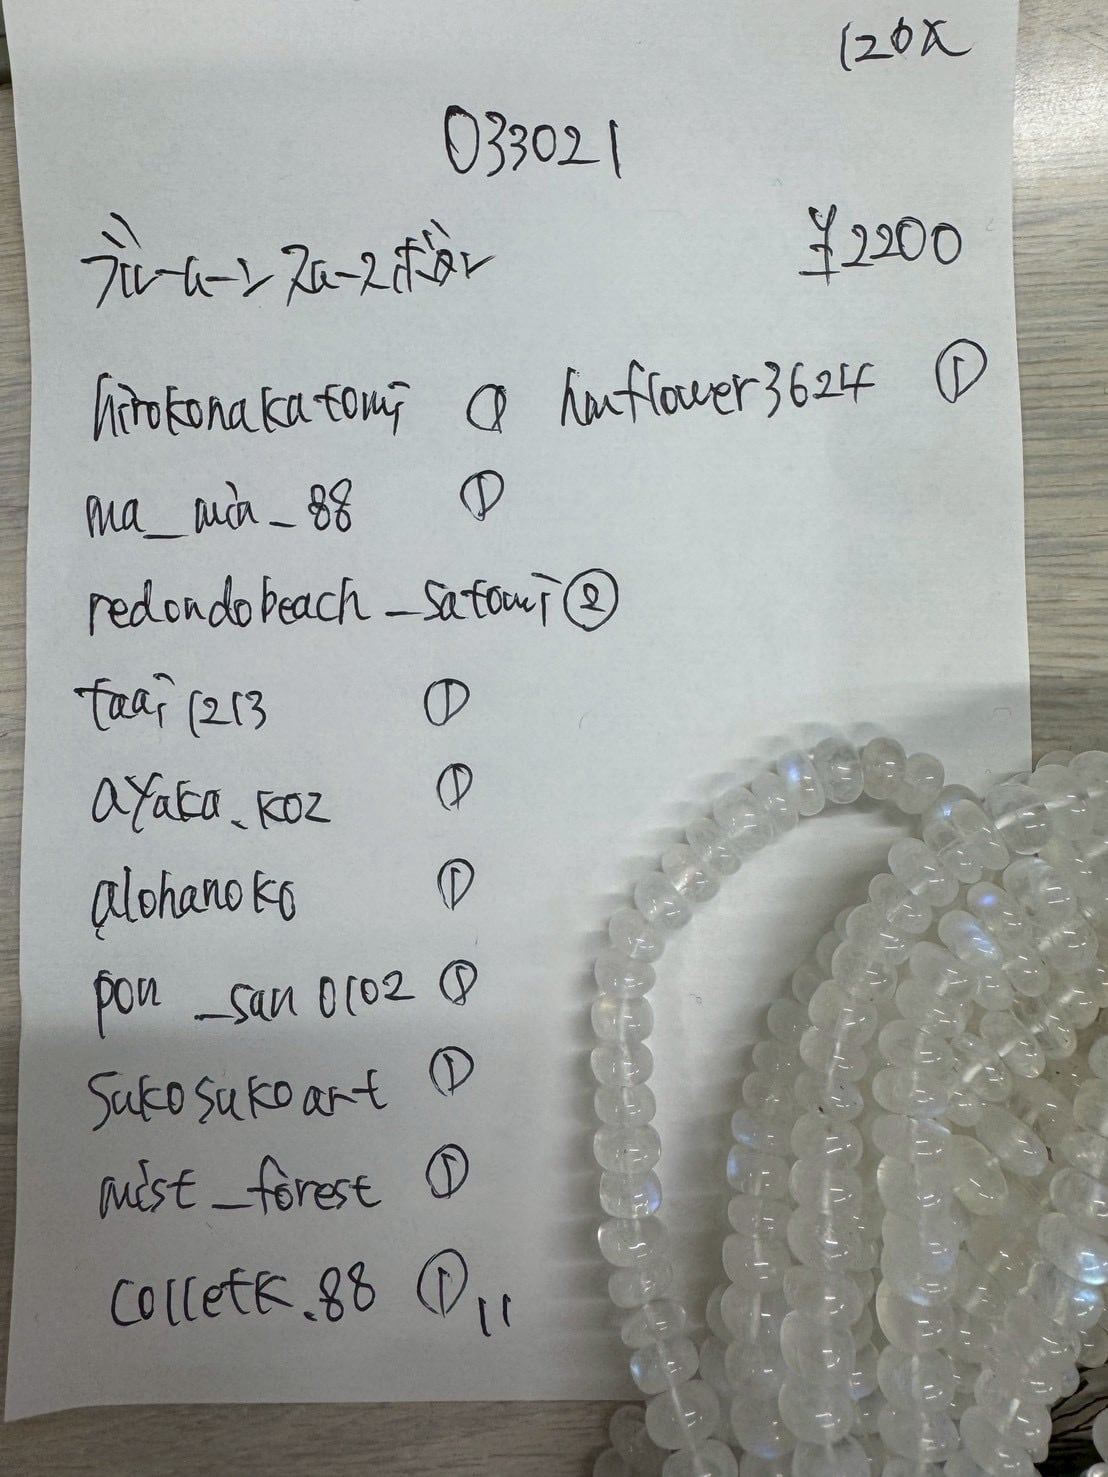 120x
033021
ブルームーンストーンボタン ¥2200
hirokonakatomi ① hmflower3624 ①
ma_min_88 ①
redondobeach_satomi ②
taai1213 ①
ayaka.koz ①
alohanoko ①
pon_san0102 ①
sukosukoart ①
mist_forest ①
colletk.88 ① 11